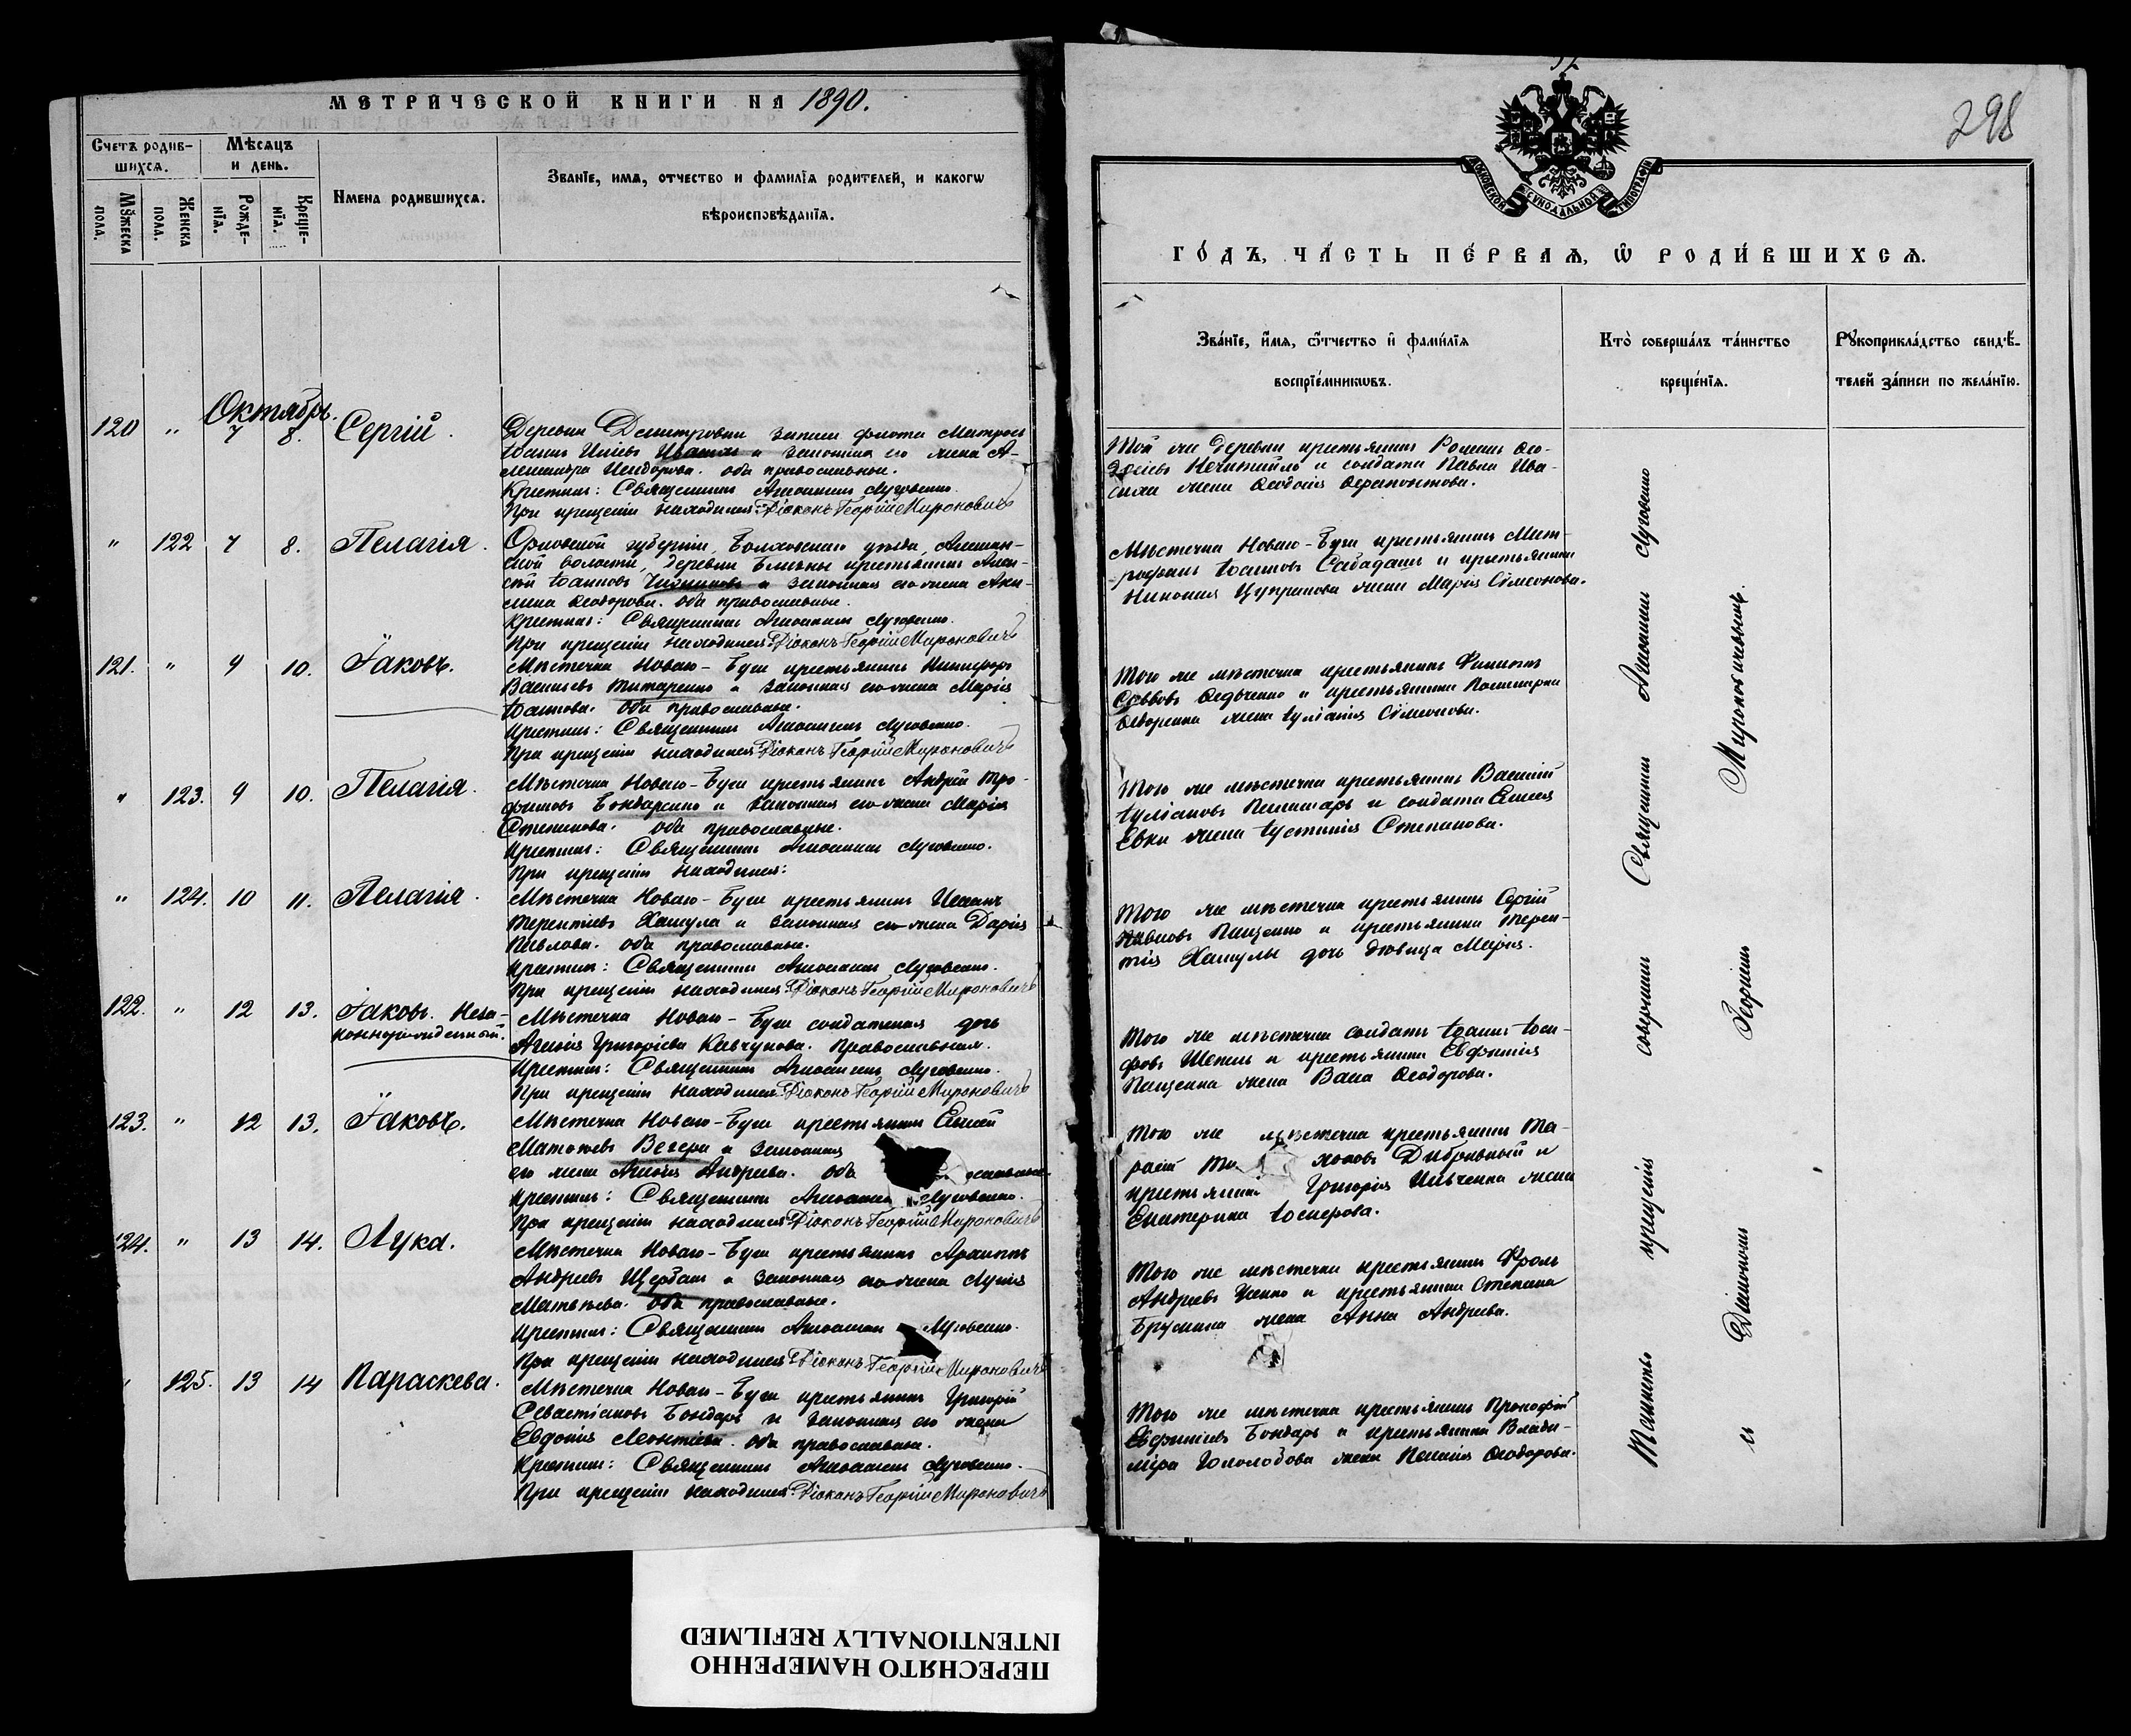 МЕТРИЧЕСКОЙ КНИГИ НА 1890.
Счетъ родив-
шихся.
Мѣсяцъ
и день.
Мꙋжеска
пола.
Женска
пола.
Рожде-
нїѧ.
Креще-
нїѧ.
Имена родившихся.
Званїе, имѧ, отчество и фамилїѧ родителей, и какогѡ
вѣроисповѣданїѧ.
Октябрь.
120 " 7 8. Сергій.
Деревни Дмитровки запаса флота Матросъ
его жена А-
Исидорова. оба православные.
Крестилъ: Священникъ Луговенко.
При крещеніи находился: Діаконъ Георгій Мироновичъ
" 122 7 8. Пелагія.
Орловской губерніи, Болховскаго уѣзда,
ской волости, деревни крестьянинъ
Іоанновъ и законная его жена Аки-
лина Ѳеодорова. оба православные.
Крестилъ: Священникъ Луговенко.
При крещеніи находился: Діаконъ Георгій Мироновичъ
121. " 9 10. Іаковъ.
Мѣстечка Новаго-Буга крестьянинъ Никифоръ
Васильевъ Титаренко и законная его жена Марія
Іоаннова. Оба православные.
Крестилъ: Священникъ Луговенко.
При крещеніи находился: Діаконъ Георгій Мироновичъ
" 123. 9 10. Пелагія.
Мѣстечка Новаго-Буга крестьянинъ Андрей Тро-
фимовъ Бондаренко и законная его жена Марія
Степанова. Оба православные.
Крестилъ: Священникъ Луговенко.
При крещеніи находился:
" 124. 10 11. Пелагія.
Мѣстечка Новаго-Буга крестьянинъ
Терентіевъ Хамула и законная его жена Дарія
Павлова. оба православные.
Крестилъ: Священникъ Луговенко.
При крещеніи находился: Діаконъ Георгій Мироновичъ
122. " 12 13. Іаковъ. Неза-
коннорожденный.
Мѣстечка Новаго-Буга солдатская дочь
Григоріева Кавчукова. Православная.
Крестилъ: Священникъ Луговенко.
При крещеніи находился: Діаконъ Георгій Мироновичъ
123. " 12 13. Іаковъ.
Мѣстечка Новаго-Буга крестьянинъ Елисей
Матѳеевъ Вечера и законная
его жена Андреева. Оба
Крестилъ: Священникъ Луговенко.
При крещеніи находился: Діаконъ Георгій Мироновичъ
124. " 13 14. Лука.
Мѣстечка Новаго-Буга крестьянинъ Архиппъ
Андреевъ Щербакъ и законная его жена
Матѳеева. Оба православные.
Крестилъ: Священникъ Луговенко.
При крещеніи находился: Діаконъ Георгій Мироновичъ
" 125. 13 14 Параскева.
Мѣстечка Новаго-Буга крестьянинъ Григорій
Севастіановъ Бондарь и законная его жена
Евдокія Леонтіева. Оба православные.
Крестилъ: Священникъ Луговенко.
При крещеніи находился: Діаконъ Георгій Мироновичъ
298
МОСКОВСКОЙ СѴНОДАЛЬНОЙ ТИПОГРАФІИ
ГО́ДЪ, ЧА́СТЬ ПЕ́РВАѦ, Ѽ РОДИ́ВШИХСѦ.
Зва́нїе, и́мѧ, ѻ҆́тчество и҆ фами́лїѧ
воспрїе́мникѡвъ.
Кто̀ соверша́лъ та́инство
креще́нїѧ.
Рꙋкоприкла́дство свидѣ́-
телей за́писи по жела́нїю.
Той же деревни крестьянинъ Романъ Ѳео-
и солдата Павла
жена Ѳеодосія
Мѣстечка Новаго-Буга крестьянинъ Мит-
рофанъ Іоанновъ Сабадашъ и крестьянина
жена Марія Сѵмеонова.
Того же мѣстечка крестьянинъ Филиппъ
Савовъ и крестьянина
жена Іуліанія Сѵмеонова.
Того же мѣстечка крестьянинъ Василій
Іуліановъ и солдата Елисея
жена Іустинія Степанова.
Того же мѣстечка крестьянинъ Сергій
Павловъ Пащенко и крестьянина Терен-
тія Хамулы дочь дѣвица Марія.
Того же мѣстечка солдатъ Іоаннъ Іоси-
фовъ и крестьянина Евфимія
Пащенка жена Васа Ѳеодорова.
Того же мѣстечка крестьянинъ Та-
расій Дибровный и
крестьянина Григорія Ильченка жена
Екатерина Іосифова.
Того же мѣстечка крестьянинъ Фролъ
Андреевъ и крестьянина Степана
жена Анна Андреева.
Того же мѣстечка крестьянинъ Прокофій
Евфиміевъ Бондарь и крестьянина Влади-
міра Гололобова жена Пелагія Ѳеодорова.
Таинство крещенія совершилъ Священникъ Луговенко
съ Діакономъ Георгіемъ Мироновичемъ.
ПЕРЕСНЯТО НАМЕРЕННО
INTENTIONALLY REFILMED